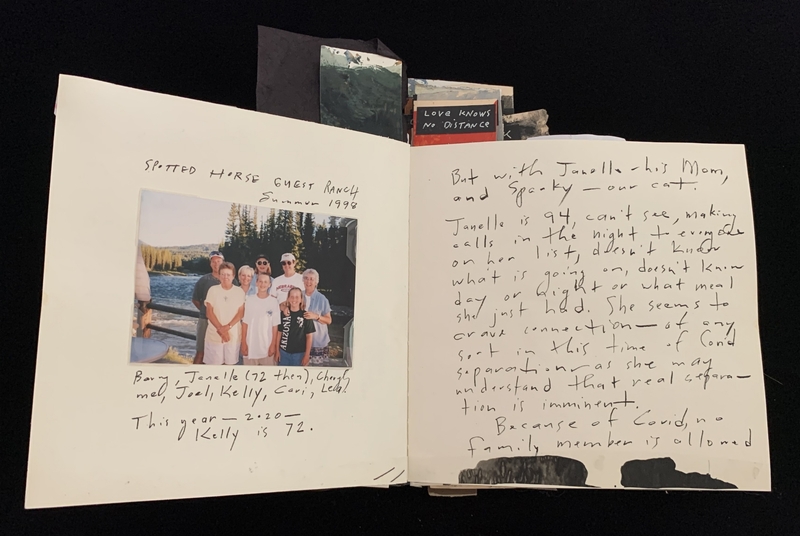 LOVE KNOWS
NO DISTANCE
SPOTTED HORSE GUEST RANCH
Summer 1998
ARIZONA
Barry, Janelle (72 then), Cheryl,
me, Joel, Kelly, Cari, Leah
This year — 2020 —
Kelly is 72.
But with Janelle – his Mom,
and Spooky – our cat.
Janelle is 94, can't see, making
calls in the night to everyone
on her list, doesn't know
what is going on, doesn't know
day or night or what meal
she just had. She seems to
crave connection – of any
sort in this time of Covid
separation, as she may
understand that real separa–
tion is imminent.
Because of Covid, no
family member is allowed